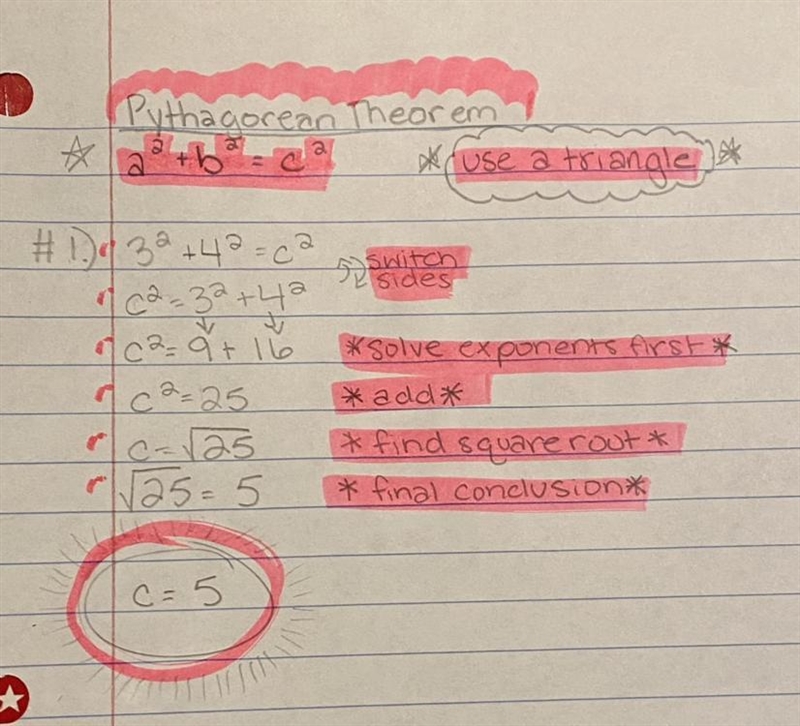 Pythagorean Theorem
a² + b² = c² *use a triangle*
#1.) 3² + 4² = c²
switch sides
c² = 3² + 4²
c² = 9 + 16 *solve exponents first*
c² = 25 *add*
c = √25 *find square rout*
√25 = 5 *final conclusion*
c = 5